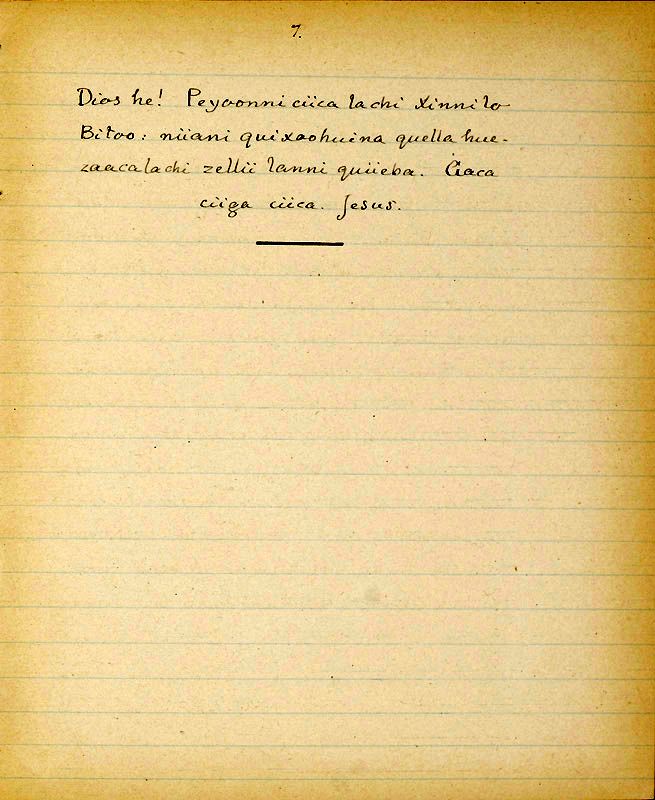 7.
Dios he! Peyoonni ciica lachi Xinni lo
Bitoo: niiani quixaohuina quella hue-
zaacalachi zellii lanni quiieba. Ciaca
ciiga ciica. Jesus.